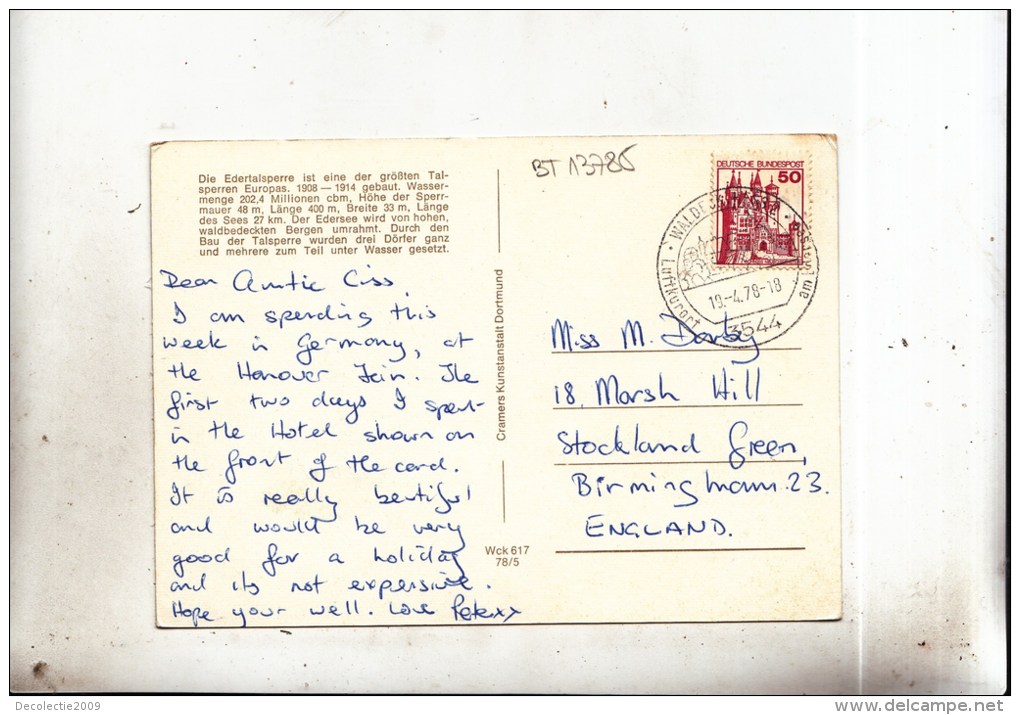 BT 13785
Die Edertalsperre ist eine der größten Tal-
sperren Europas. 1908 — 1914 gebaut. Wasser-
menge 202,4 Millionen cbm, Höhe der Sperr-
mauer 48 m, Länge 400 m, Breite 33 m, Länge
des Sees 27 km. Der Edersee wird von hohen,
waldbedeckten Bergen umrahmt. Durch den
Bau der Talsperre wurden drei Dörfer ganz
und mehrere zum Teil unter Wasser gesetzt.
Dear Auntie Ciss,
I am spending this
week in Germany, at
the Hanover Fair. The
first two days I spent
in the Hotel shown on
the front of the card.
It is really beutiful
and would be very
good for a holiday
and its not expensive.
Hope your well. Love Petexx
Cramers Kunstanstalt Dortmund
Wck 617
78/5
DEUTSCHE BUNDESPOST
50
Luftkurort
19.-4.78-18
3544
Miss M. Darby
18, Marsh Hill
Stockland Green,
Birmingham 23.
ENGLAND.
Decolectie2009
www.delcampe.net